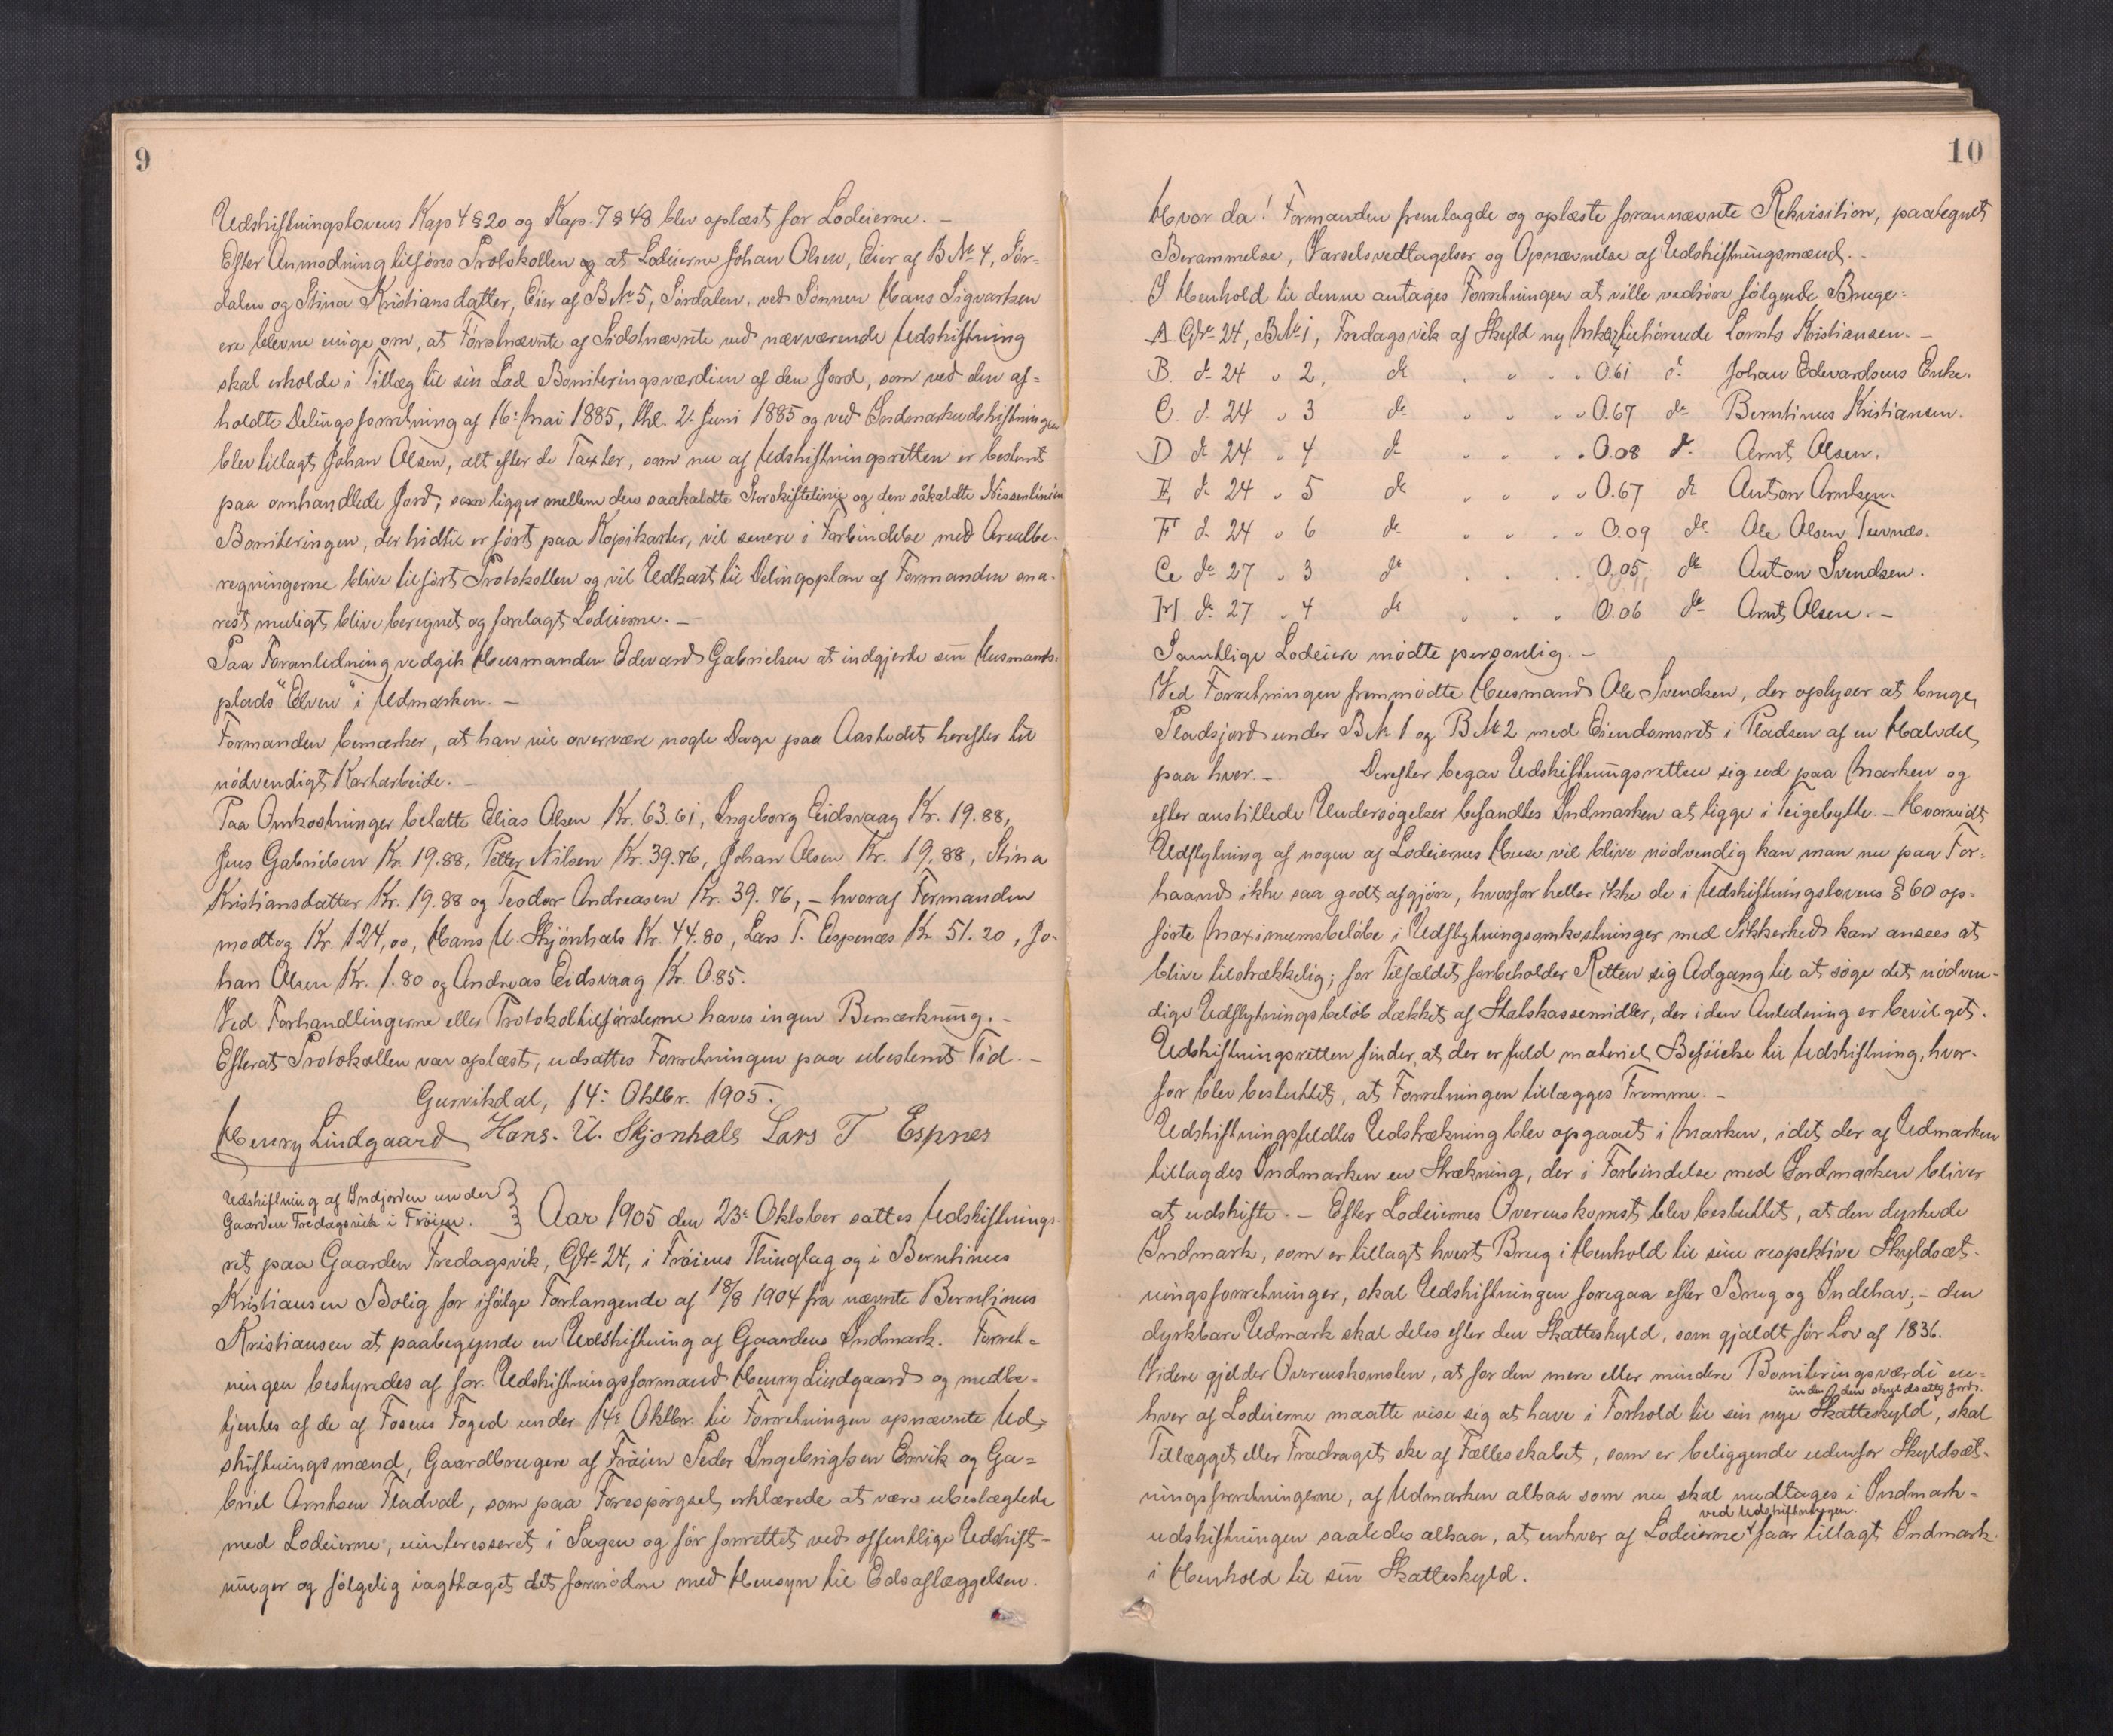 9
Udskiftningslovens Kap 4 § 20 og Kap. 7 § 48 blev oplæst for Lodeierne. –
Efter Anmodning tilføres Protokollen og at Lodeierne Johan Olsen, Eier af B.No 4, Sør-
dalen og Stina Kristiansdatter, Eier af B.No 5, Sørdalen, ved Sønnen Hans Sigvartsen
ere blevne enige om, at Førstnævnte af Sidstnævnte ved nærværende Udskiftning
skal erholde i Tillæg til sin Lod Boniteringsværdien af den Jord, som ved den af-
holdte Delingsforretning af 16: Mai 1885, thl. 2. Juni 1885 og ved Indmarkudskiftningen
blev tillagt Johan Olsen, alt efter de Taxter, som nu af Udskiftningsretten er bestemt
paa omhandlede Jord, som ligger mellem den saakaldte Storskiftelinie og den såkaldte Nissenlinien
Boniteringen, der hidtil er ført paa Kopikarter, vil senere i Forbindelse med Arealbe-
regningerne blive tilført Protokollen og vil Udkast til Delingsplan af Formanden sna-
rest muligt blive beregnet og forelagt Lodeierne. –
Paa Foranledning vedgik Husmanden Edevard Gabrielsen at indgjerde sin Husmands-
plads "Elven" i Udmarken. –
Formanden bemærker, at han vil overvære nogle Dage paa Aastedet herefter til
nødvendigt Kartarbeide. –
Paa Omkostninger betalte Elias Olsen Kr. 63.61, Ingeborg Eidsvaag Kr. 19.88,
Jens Gabrielsen Kr. 19.88, Petter Nilsen Kr. 39.76, Johan Olsen Kr. 19.88, Stina
Kristiansdatter Kr. 19.88 og Teodor Andreasen Kr. 39.76, – hvoraf Formanden
modtog Kr. 124,00, Hans U. Skjønhals Kr. 44.80, Lars T. Espenæs Kr. 51.20, Jo-
han Olsen Kr. 1.80 og Andreas Eidsvaag Kr. 0.85.
Ved Forhandlingerne eller Protokoltilførslerne haves ingen Bemærkning. –
Efterat Protokollen var oplæst, udsattes Forretningen paa ubestemt Tid. –
Gurvikdal, 14: Oktbr. 1905.
Henry Lindgaard Hans. U. Skjønhals Lars T Espnes
Udskiftning af Indjorden under
Gaarden Fredagsvik i Frøien.
Aar 1905 den 23: Oktober sattes Udskiftnings-
ret paa Gaarden Fredagsvik, G.No 24, i Frøiens Thinglag og i Berntinus
Kristiansen Bolig for ifølge Forlangende af 18/8 1904 fra nævnte Berntinus
Kristiansen at paabegynde en Udskiftning af Gaardens Indmark. Forret-
ningen bestyredes af for. Udskiftningsformand Henry Lindgaard og medbe-
tjentes af de af Fosens Foged under 14: Oktbr. til Forretningen opnævnte Ud-
skiftningsmænd, Gaardbrugere af Frøien Peder Ingebrigtsen Ervik og Ga-
briel Arntsen Fladval, som paa Forespørgsel erklærede at være ubeslægtede
med Lodeierne, uinteresseret i Sagen og før forrettet ved offentlige Udskift-
ninger og følgelig iagttaget det fornødne med Hensyn til Edsaflæggelsen.
10
Hvor da! Formanden fremlagde og oplæste forannævnte Rekvisition, paategnet
Berammelse, Varselsvedtagelser og Opnævnelse af Udskiftningsmænd. –
I Henhold til denne antages Forretningen at ville vedrøre følgende Bruge:
A. G.No 24, B.No 1, Fredagsvik af Skyld ny Mk. tilhørende Lornts Kristiansen. –
B. do 24 " 2, do " " " 0.61 do Johan Edevardsens Enke.
C. do 24 " 3 do " " " 0.67 do Berntinus Kristiansen.
D do 24 " 4 do " " " 0.08 do Arnt Olsen.
E do 24 " 5 do " " " 0.67 do Anton Arntsen.
F do 24 " 6 do " " " 0.09 do Ole Olsen
G do 27 " 3 do " " " 0.05 do Anton Svendsen.
H do 27 " 4 do " " " 0.06 do Arnt Olsen. –
Samtlige Lodeiere mødte personlig. –
Ved Forretningen fremmødte Husmand Ole Svendsen, der oplyser at bruge
Pladsjord under B.No 1 og B.No 2 med Eiendomsret i Pladsen af en Halvdel
paa hver. – Derefter begav Udskiftningsretten sig ud paa Marken og
efter anstillede Undersøgelser befandtes Indmarken at ligge i Teigebytte. – Hvorvidt
Udflytning af nogen af Lodeiernes Huse vil blive nødvendig kan man nu paa For-
haand ikke saa godt afgjøre, hvorfor heller ikke de i Udskiftningslovens § 60 op-
førte Maximumsbeløbe i Udflytningsomkostninger med Sikkerhed kan ansees at
blive tilstrækkelig; for Tilfældet forbeholder Retten sig Adgang til at søge det nødven-
dige Udflytningsbeløb dækket af Statskassemidler, der i den Anledning er bevilget.
Udskiftningsretten finder, at der er fuld materiel Beføielse til Udskiftning, hvor-
for blev besluttet, at Forretningen tillægges Fremme. –
Udskiftningsfeldtes Udstrækning blev opgaaet i Marken, idet der af Udmarken
tillagdes Indmarken en Strækning, der i Forbindelse med Indmarken bliver
at udskifte. – Efter Lodeiernes Overenskomst blev besluttet, at den dyrkede
Indmark, som er tillagt hvert Brug i Henhold til sine respektive Skyldsæt-
ningsforretninger, skal Udskiftningen foregaa efter Brug og Indehav; – den
dyrkbare Udmark skal deles efter den Skatteskyld, som gjældt før Lov af 1836.
Videre gjelder Overenskomsten, at for den mere eller mindre Boniteringsværdi en-
inden den skyldsatte Jord.
hver af Lodeierne maatte vise sig at have i Forhold til sin nye Skatteskyld, skal
Tillægget eller Fradraget ske af Fællesskabet, som er beliggende udenfor Skyldsæt-
ningsforretningerne, af Udmarken altsaa som nu skal medtages i Indmark-
ved Udskiftningen.
udskiftningen saaledes altsaa, at enhver af Lodeierne faar tillagt Indmark
i Henhold til sin Skatteskyld.